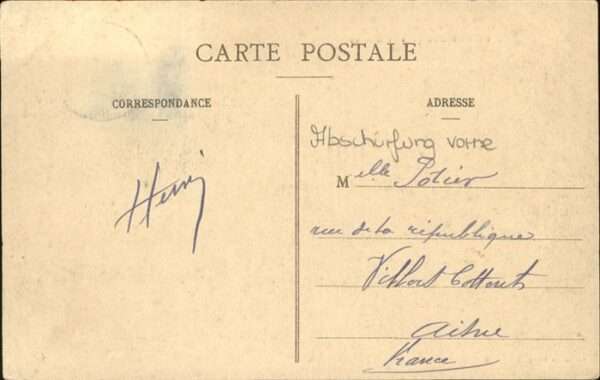 CARTE POSTALE
CORRESPONDANCE
ADRESSE
Henri
Abschürfung vorne
Melle Potier
rue de la république
Villers Cotterets
Aisne
France